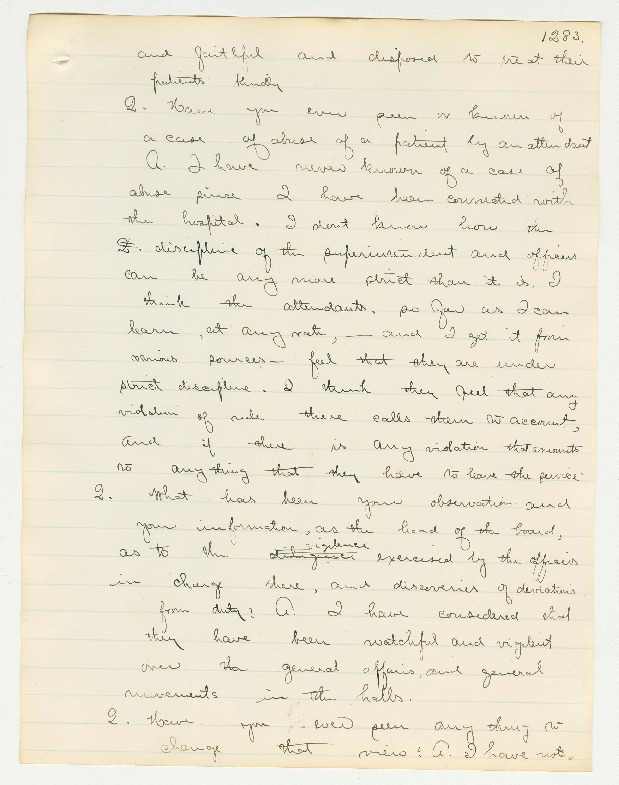 1283.
and faithful and disposed to treat their
patients kindly
Q. Have you ever seen or known of
a case of abuse of a patient by an attendant
A. I have never known of a case of
abuse since I have been connected with
the hospital. I don't know how the
discipline of the superintendent and officers
can be any more strict than it is. I
think the attendants, so far as I can
learn, at any rate, — and I get it from
various sources — feel that they are under
strict discipline. I think they feel that any
violation of rule there calls them to account,
and if there is any violation that amounts
to anything that they have to leave the service
Q. What has been your observation and
your information, as the head of the board,
vigilence
as to the exercised by the officers
in charge there, and discoveries of deviations
from duty? A. I have considered that
they have been watchful and vigilent
over the general affairs, and general
movements in the halls.
Q. Have you ever seen any thing to
change that view? A. I have not.